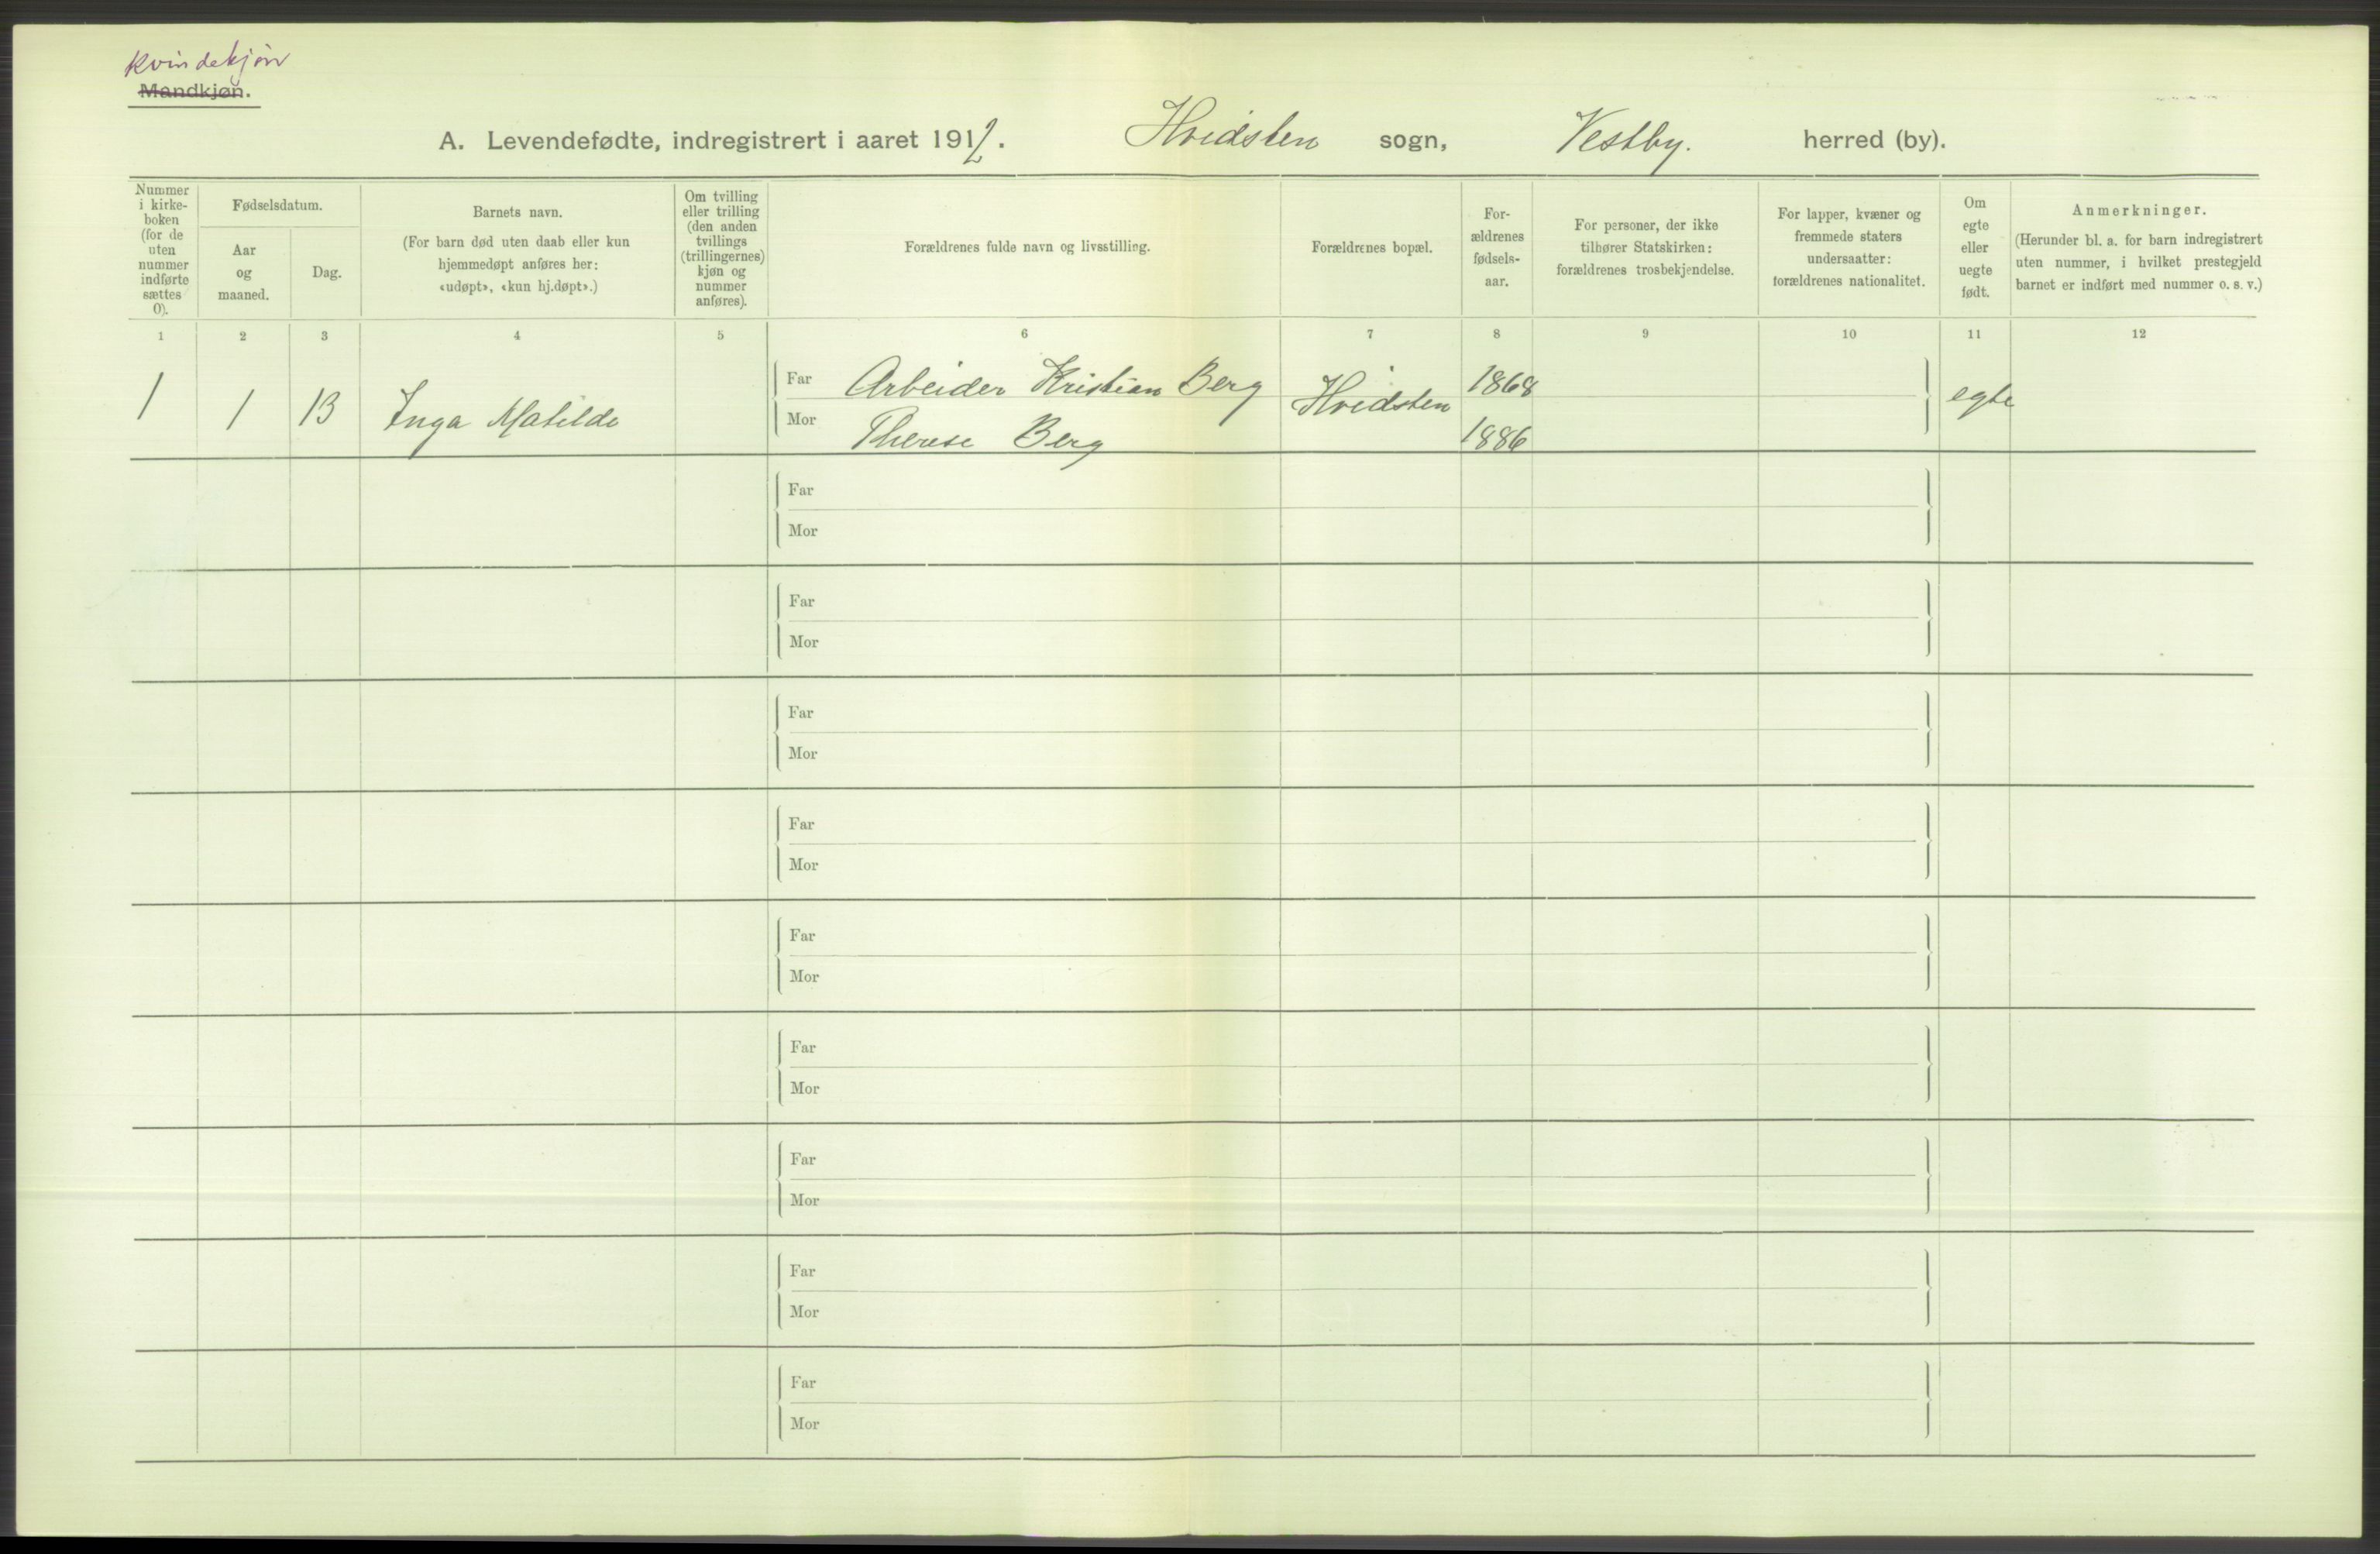 Kvindekjøn
Mandkjøn.
A. Levendefødte, indregistrert i aaret 1912. Hvidsten sogn, Vestby. herred (by).
Nummer
i kirke-
boken
(for de
uten
nummer
indførte
sættes
0).
Fødselsdatum.
Aar
og
maaned.
Dag.
Barnets navn.
(For barn død uten daab eller kun
hjemmedøpt anføres her:
«udøpt», «kun hj.døpt».)
Om tvilling
eller trilling
(den anden
tvillings
(trillingernes)
kjøn og
nummer
anføres).
Forældrenes fulde navn og livsstilling.
Forældrenes bopæl.
For-
ældrenes
fødsels-
aar.
For personer, der ikke
tilhører Statskirken:
forældrenes trosbekjendelse.
For lapper, kvæner og
fremmede staters
undersaatter:
forældrenes nationalitet.
Om
egte
eller
uegte
født.
Anmerkninger.
(Herunder bl. a. for barn indregistrert
uten nummer, i hvilket prestegjeld
barnet er indført med nummer o. s. v.)
1 2 3 4 5 6 7 8 9 10 11 12
1 1 13 Inga Matilde Far Arbeider Kristian Berg Hvidsten 1868 egte
Mor Therese Berg 1886
Far
Mor
Far
Mor
Far
Mor
Far
Mor
Far
Mor
Far
Mor
Far
Mor
Far
Mor
Far
Mor